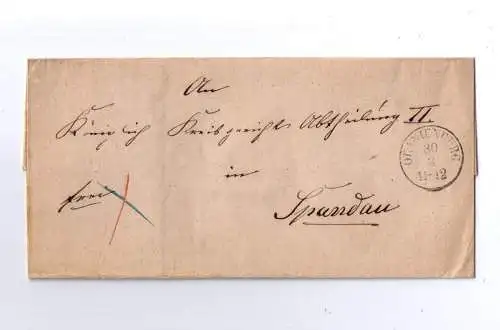 An
Königlich Kreisgerichts Abtheilung II.
ORANIENBURG
30
3
11-12
in
frei
Spandau